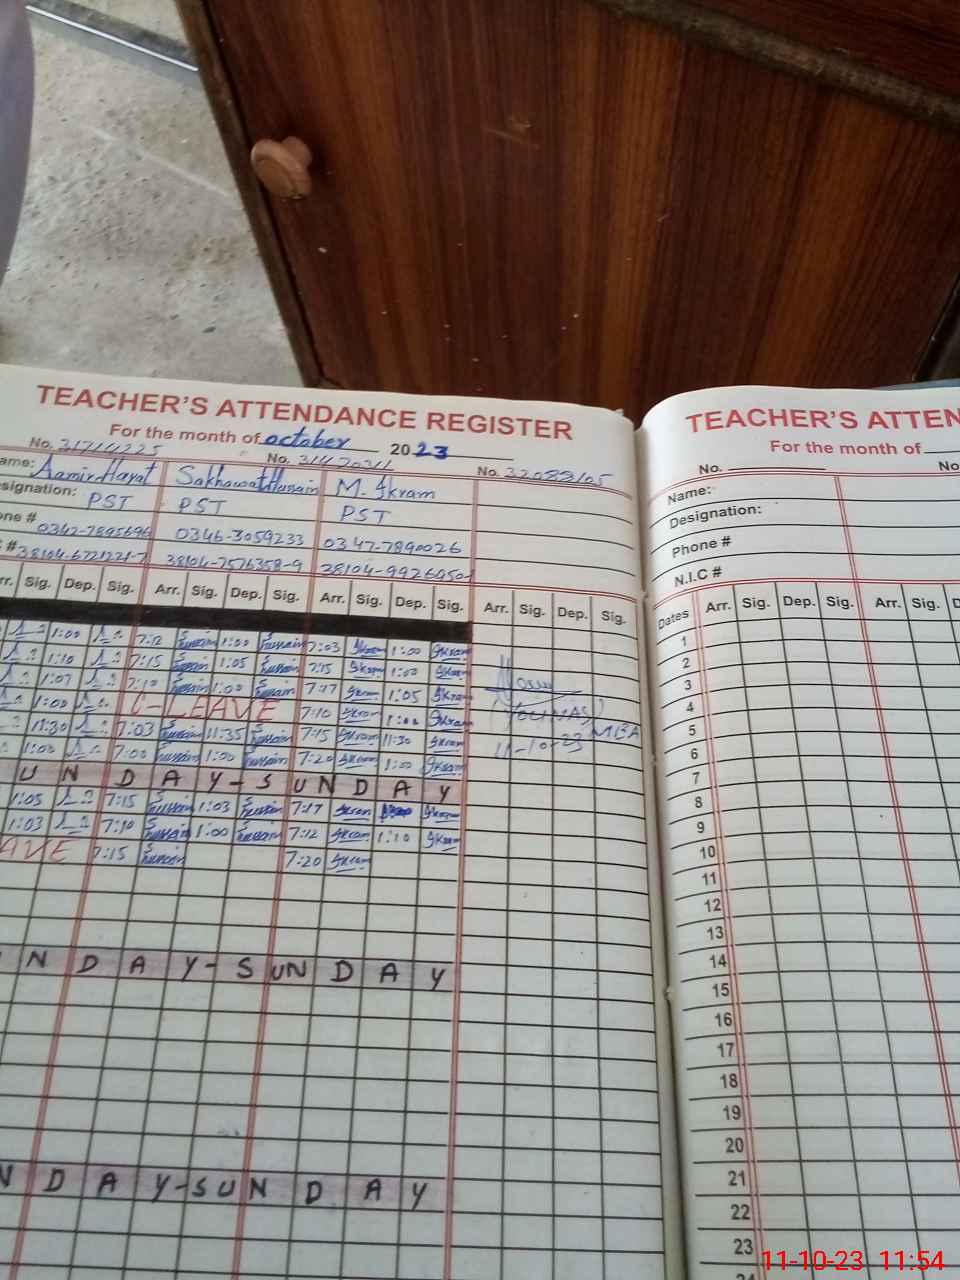 TEACHER'S ATTENDANCE REGISTER
For the month of october 2023
No. 31714225 No. No. 32088105
ame: Aamir Hayat Sakhawat Hussain M. Ikram
signation: PST PST PST
one # 0346-3059233 0347-7890026
#
rr. Sig. Dep. Sig. Arr. Sig. Dep. Sig. Arr. Sig. Dep. Sig. Arr. Sig. Dep. Sig.
1:00 7:12 Hussain 1:00 Hussain 7:03 Ikram 1:00 Ikram
1:10 7:15 Hussain 1:05 Hussain 7:15 Ikram 1:00 Ikram
1:07 7:10 Hussain 1:00 Hussain 7:17 Ikram 1:05 Ikram
1:00 C-LEAVE 7:10 Ikram 1:00 Ikram
11:30 7:03 Hussain 11:35 Hussain 7:15 Ikram 11:30 Ikram
1:00 7:00 Hussain 1:00 Hussain 7:20 Ikram 1:00 Ikram
(YOUNAS) MEA
11-10-23
U N D A Y - S U N D A Y
1:05 7:15 Hussain 1:03 Hussain 7:17 Ikram Ikram
1:03 7:10 Hussain 1:00 Hussain 7:12 Ikram 1:10 Ikram
AVE 7:15 Hussain 7:20 Ikram
N D A Y - S U N D A Y
N D A Y - S U N D A Y
TEACHER'S ATTEN
For the month of
No. No
Name:
Designation:
Phone #
N.I.C #
Dates Arr. Sig. Dep. Sig. Arr. Sig. D
1
2
3
4
5
6
7
8
9
10
11
12
13
14
15
16
17
18
19
20
21
22
23
24
11-10-23 11:54